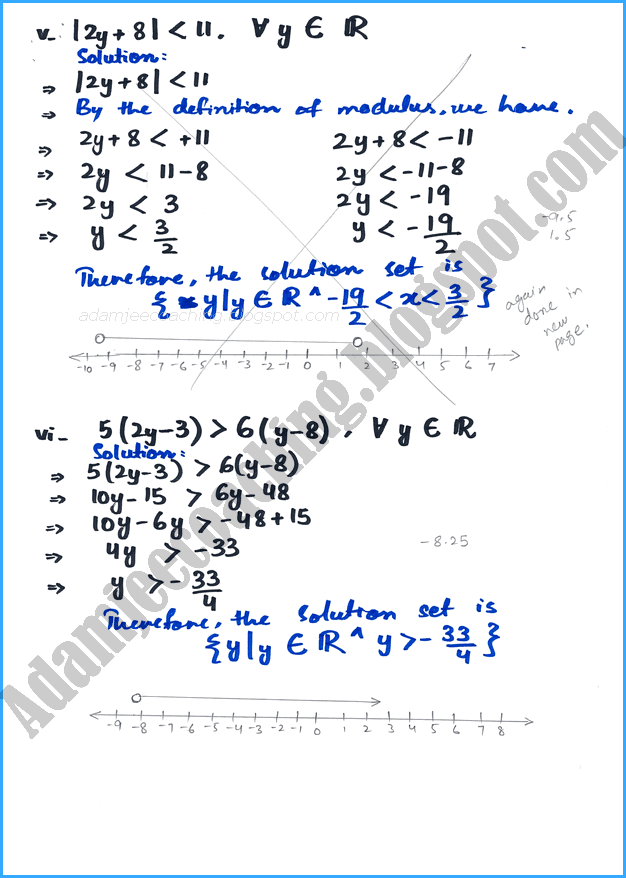 v- |2y + 8| < 11. ∀ y ∈ ℝ
Solution:
⇒ |2y + 8| < 11
⇒ By the definition of modulus, we have.
⇒ 2y + 8 < +11 2y + 8 < -11
⇒ 2y < 11 - 8 2y < -11 - 8
⇒ 2y < 3 2y < -19
⇒ y < 3/2 y < -19/2
-9.5
1.5
Therefore, the solution set is
{ y | y ∈ ℝ ^ -19/2 < x < 3/2 }
again
done in
new
page.
adamjeecoaching.blogspot.com
-10 -9 -8 -7 -6 -5 -4 -3 -2 -1 0 1 2 3 4 5 6 7
vi- 5(2y-3) > 6(y-8), ∀ y ∈ ℝ
Solution:
⇒ 5(2y-3) > 6(y-8)
⇒ 10y - 15 > 6y - 48
⇒ 10y - 6y > -48 + 15
⇒ 4y > -33
-8.25
⇒ y > -33/4
Therefore, the solution set is
{y | y ∈ ℝ ^ y > -33/4}
-9 -8 -7 -6 -5 -4 -3 -2 -1 0 1 2 3 4 5 6 7 8
Adamjeecoaching.blogspot.com